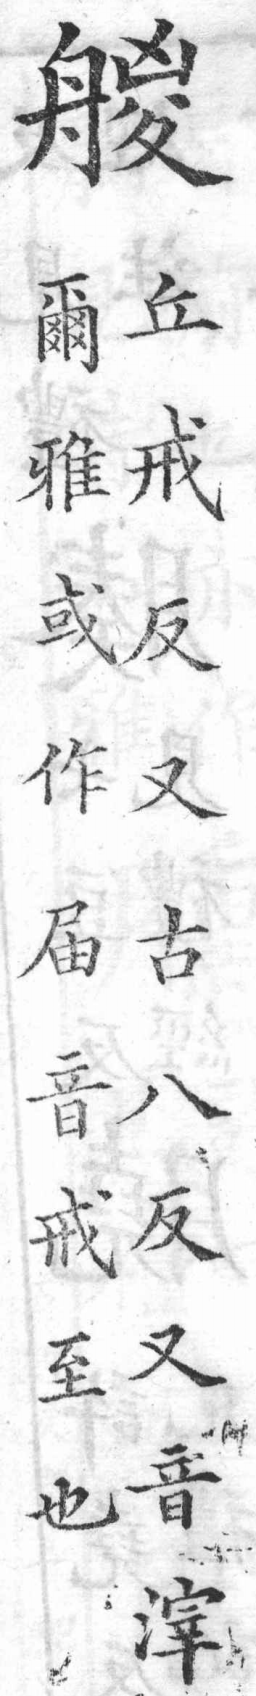 艐
丘戒反又古八反又音滓
爾雅或作届音戒至也